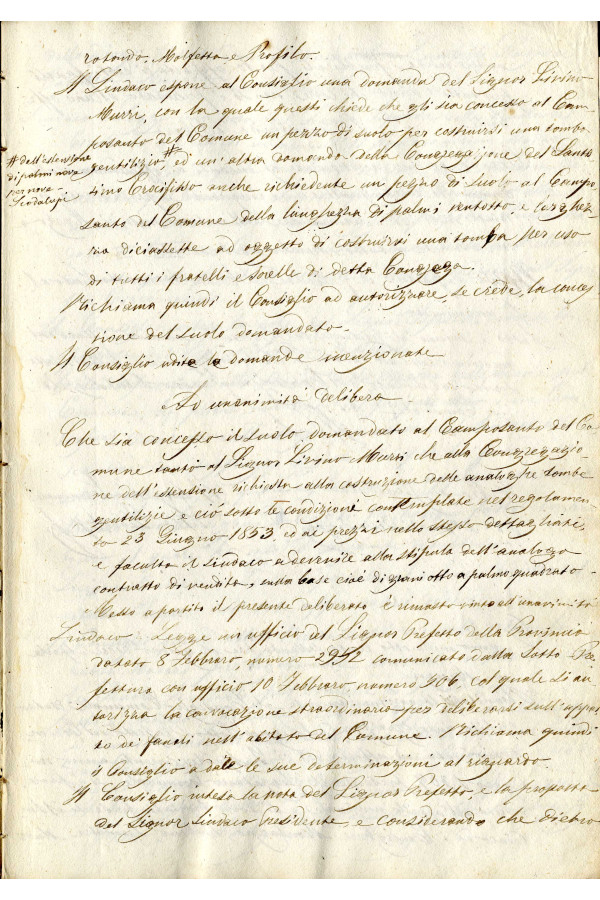 rotondo. Molfetta e Profilo.
Il Sindaco espone al Consiglio una domanda del Signor Livino
Murri, con la quale questi chiede che gli sia concesso al Cam-
posanto del Comune un pezzo di suolo per costruirsi una tomba
gentilizia # ed un'altra domanda della Congregazione del Santis
simo Crocifisso anche richiedente un pezzo di suolo al Campo
santo del Comune della lunghezza di palmi ventotto, e larghez
za diciassette ad oggetto di costruirsi una tomba per uso
di tutti i fratelli e sorelle di detta Congrega.
# dell'estensione
di palmi nove
per nove
Richiama quindi il Consiglio ad autorizzare, se crede, la conces
sione del suolo domandato.
Il Consiglio udite le domande menzionate
Ad unanimità delibera
Che sia concesso il suolo domandato al Camposanto del Co
mune tanto al Signor Livino Murri che alla Congregazio-
ne dell'estensione richiesta alla costruzione delle analoghe tombe
gentilizie e ciò sotto le condizioni contemplate nel regolamen
to 23 Giugno 1853, ed ai prezzi nello stesso dettagliati,
e faculta il Sindaco a devenire alla stipula dell'analogo
contratto di vendita, sulla base cioè di grani otto a palmo quadrato.
Messo a partito il presente deliberato è rimasto vinto all'unanimità
Sindaco: Legge un ufficio del Signor Prefetto della Provincia
datato 8 Febbraro, numero 2952 comunicato dalla Sotto-Pre
fettura con ufficio 10 Febbraro, numero 906, col quale si au-
torizza la convocazione straordinaria per deliberarsi sull'appal
to dei fanali nell'abitato del Comune. Richiama quindi
il Consiglio a dare le sue determinazioni al riguardo.
Il Consiglio intesa la nota del Signor Prefetto, e la proposta
del Signor Sindaco Presidente, e considerando che dietro